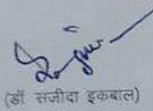 (डॉ सजीदा इकबाल)